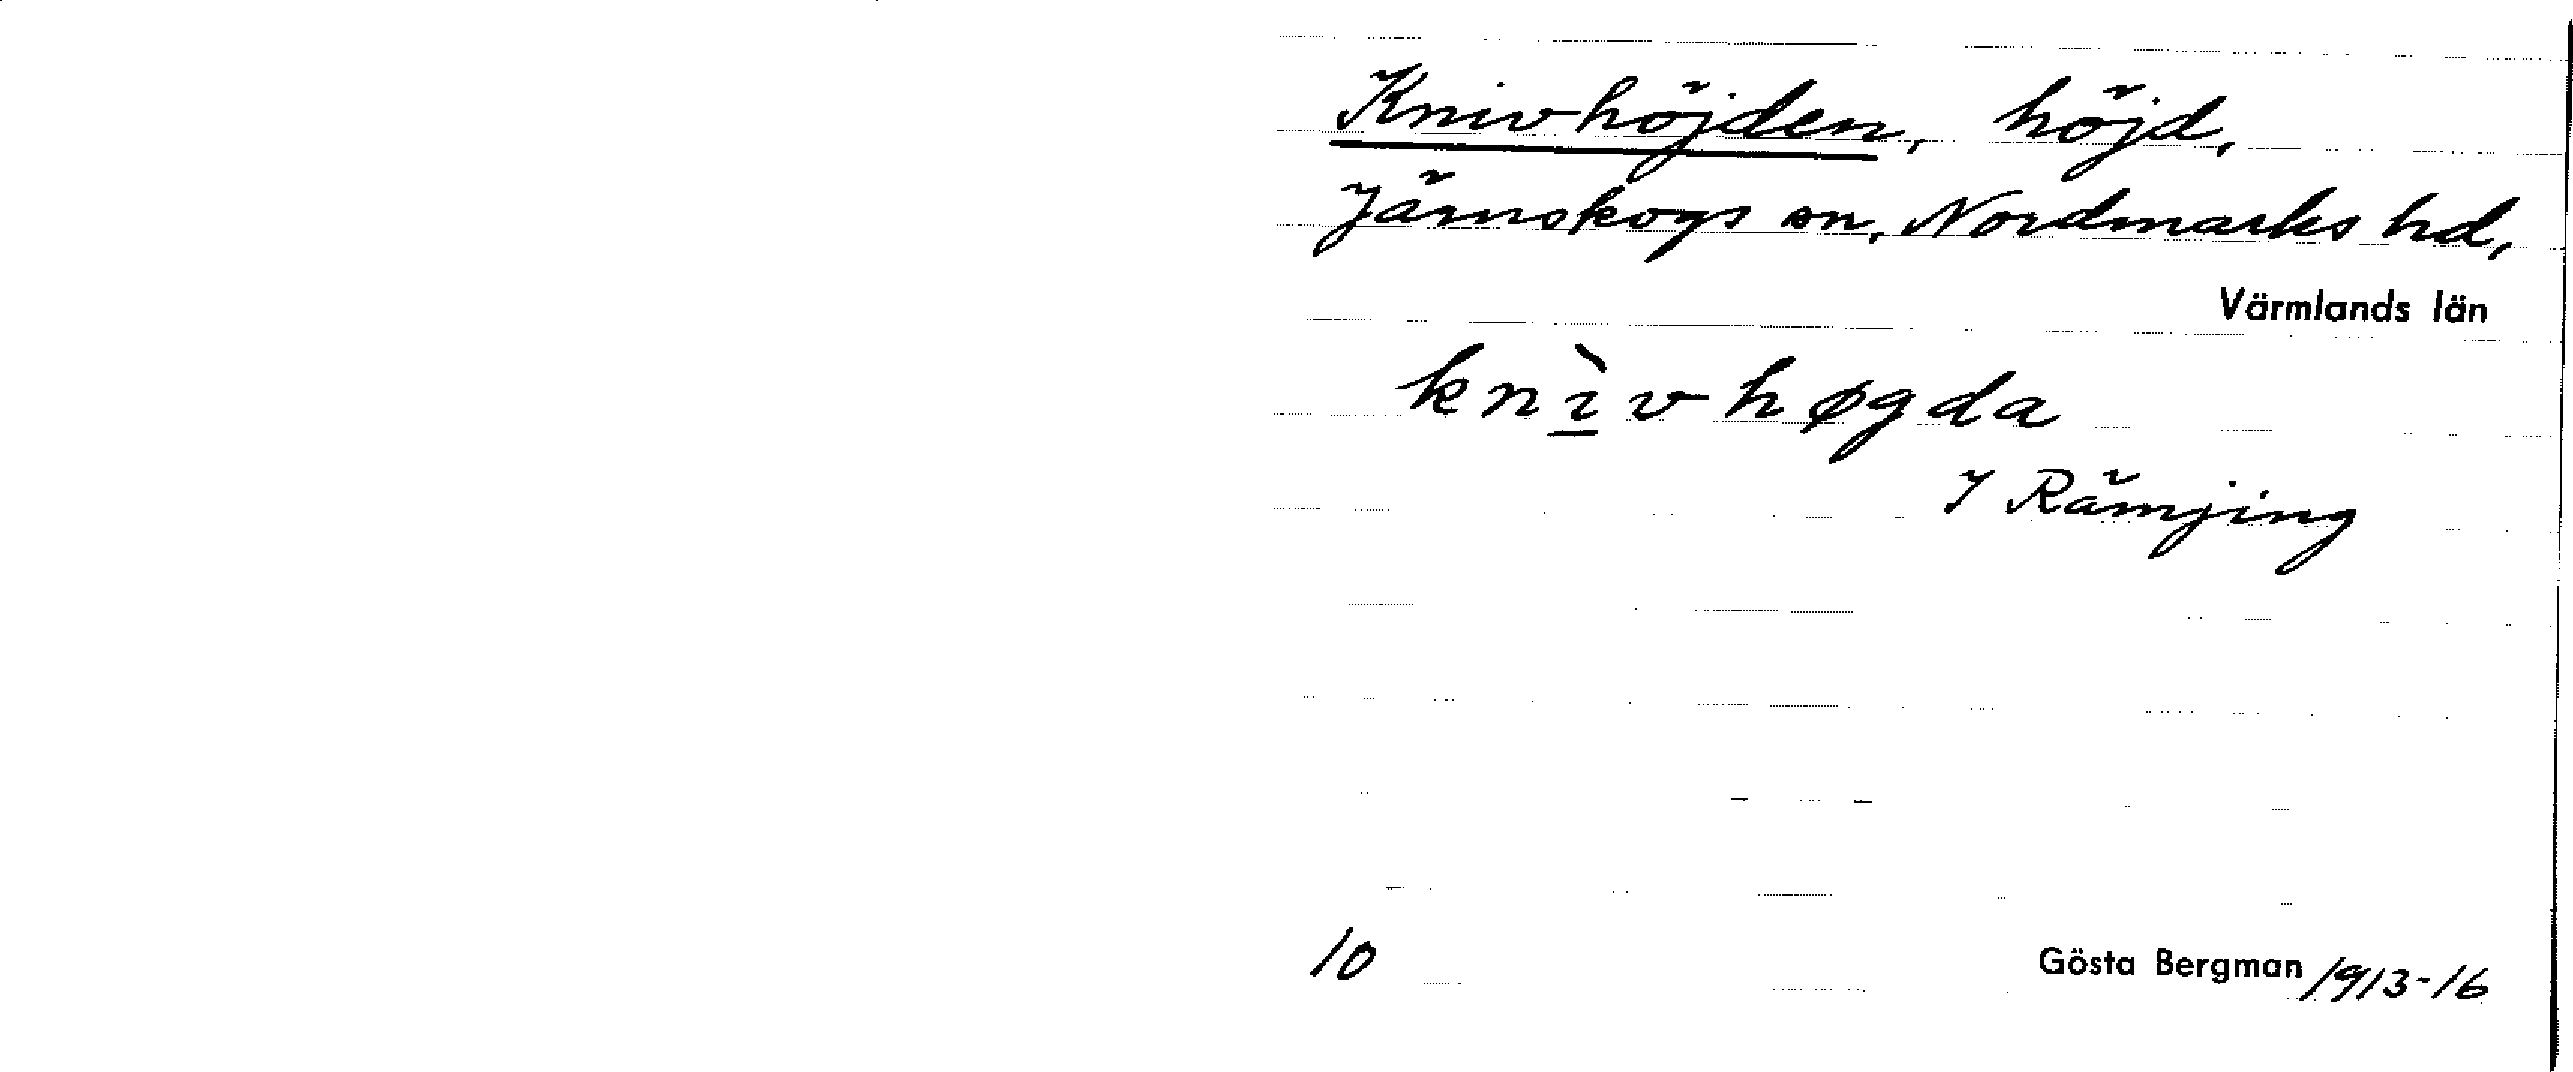 Knivhöjden, höjd,
Järnskogs sn, Nordmarks hd,
Värmlands län
knìvhøgda
I Rämjing
10
Gösta Bergman 1913-16